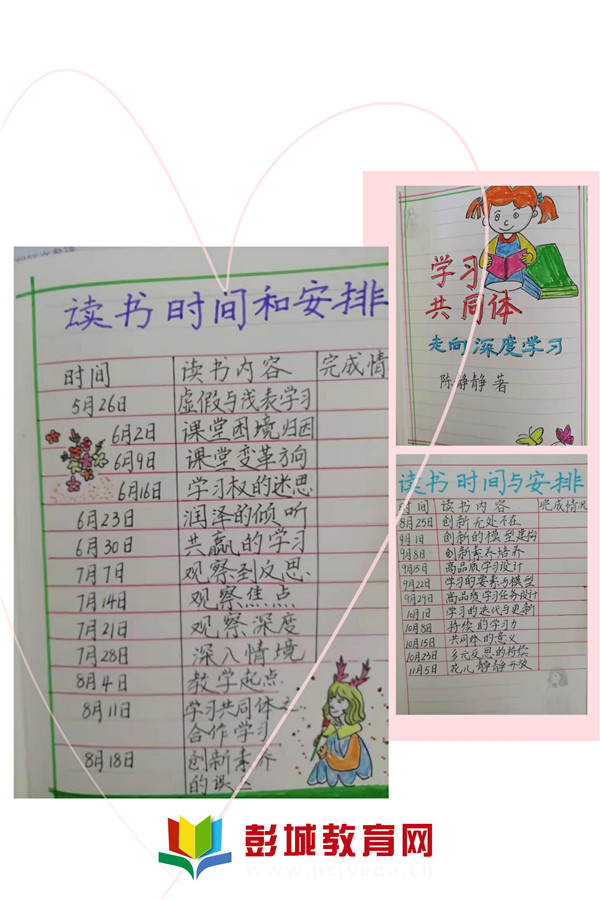 读书时间和安排
时间 读书内容 完成情
5月26日 虚假与浅表学习
6月2日 课堂困境归因
6月9日 课堂变革方向
6月16日 学习权的迷思
6月23日 润泽的倾听
6月30日 共赢的学习
7月7日 观察到反思
7月14日 观察焦点
7月21日 观察深度
7月28日 深入情境
8月4日 教学起点
8月11日 学习共同体之
合作学习
8月18日 创新素养
的误
学习
共同体
走向深度学习
陈静静 著
读书时间与安排
时间 读书内容 完成情况
8月25日 创新无处不在
9月1日 创新的模型建构
9月8日 创新素养培养
9月15日 高品质学习设计
9月22日 学习的要素与模型
9月29日 高品质学习任务设计
10月1日 学习的迭代与更新
10月8日 持续的学习力
10月15日 共同体的意义
10月23日 多元反思的持续
11月5日 花儿静静开放
彭城教育网
www.pcjyedu.cn